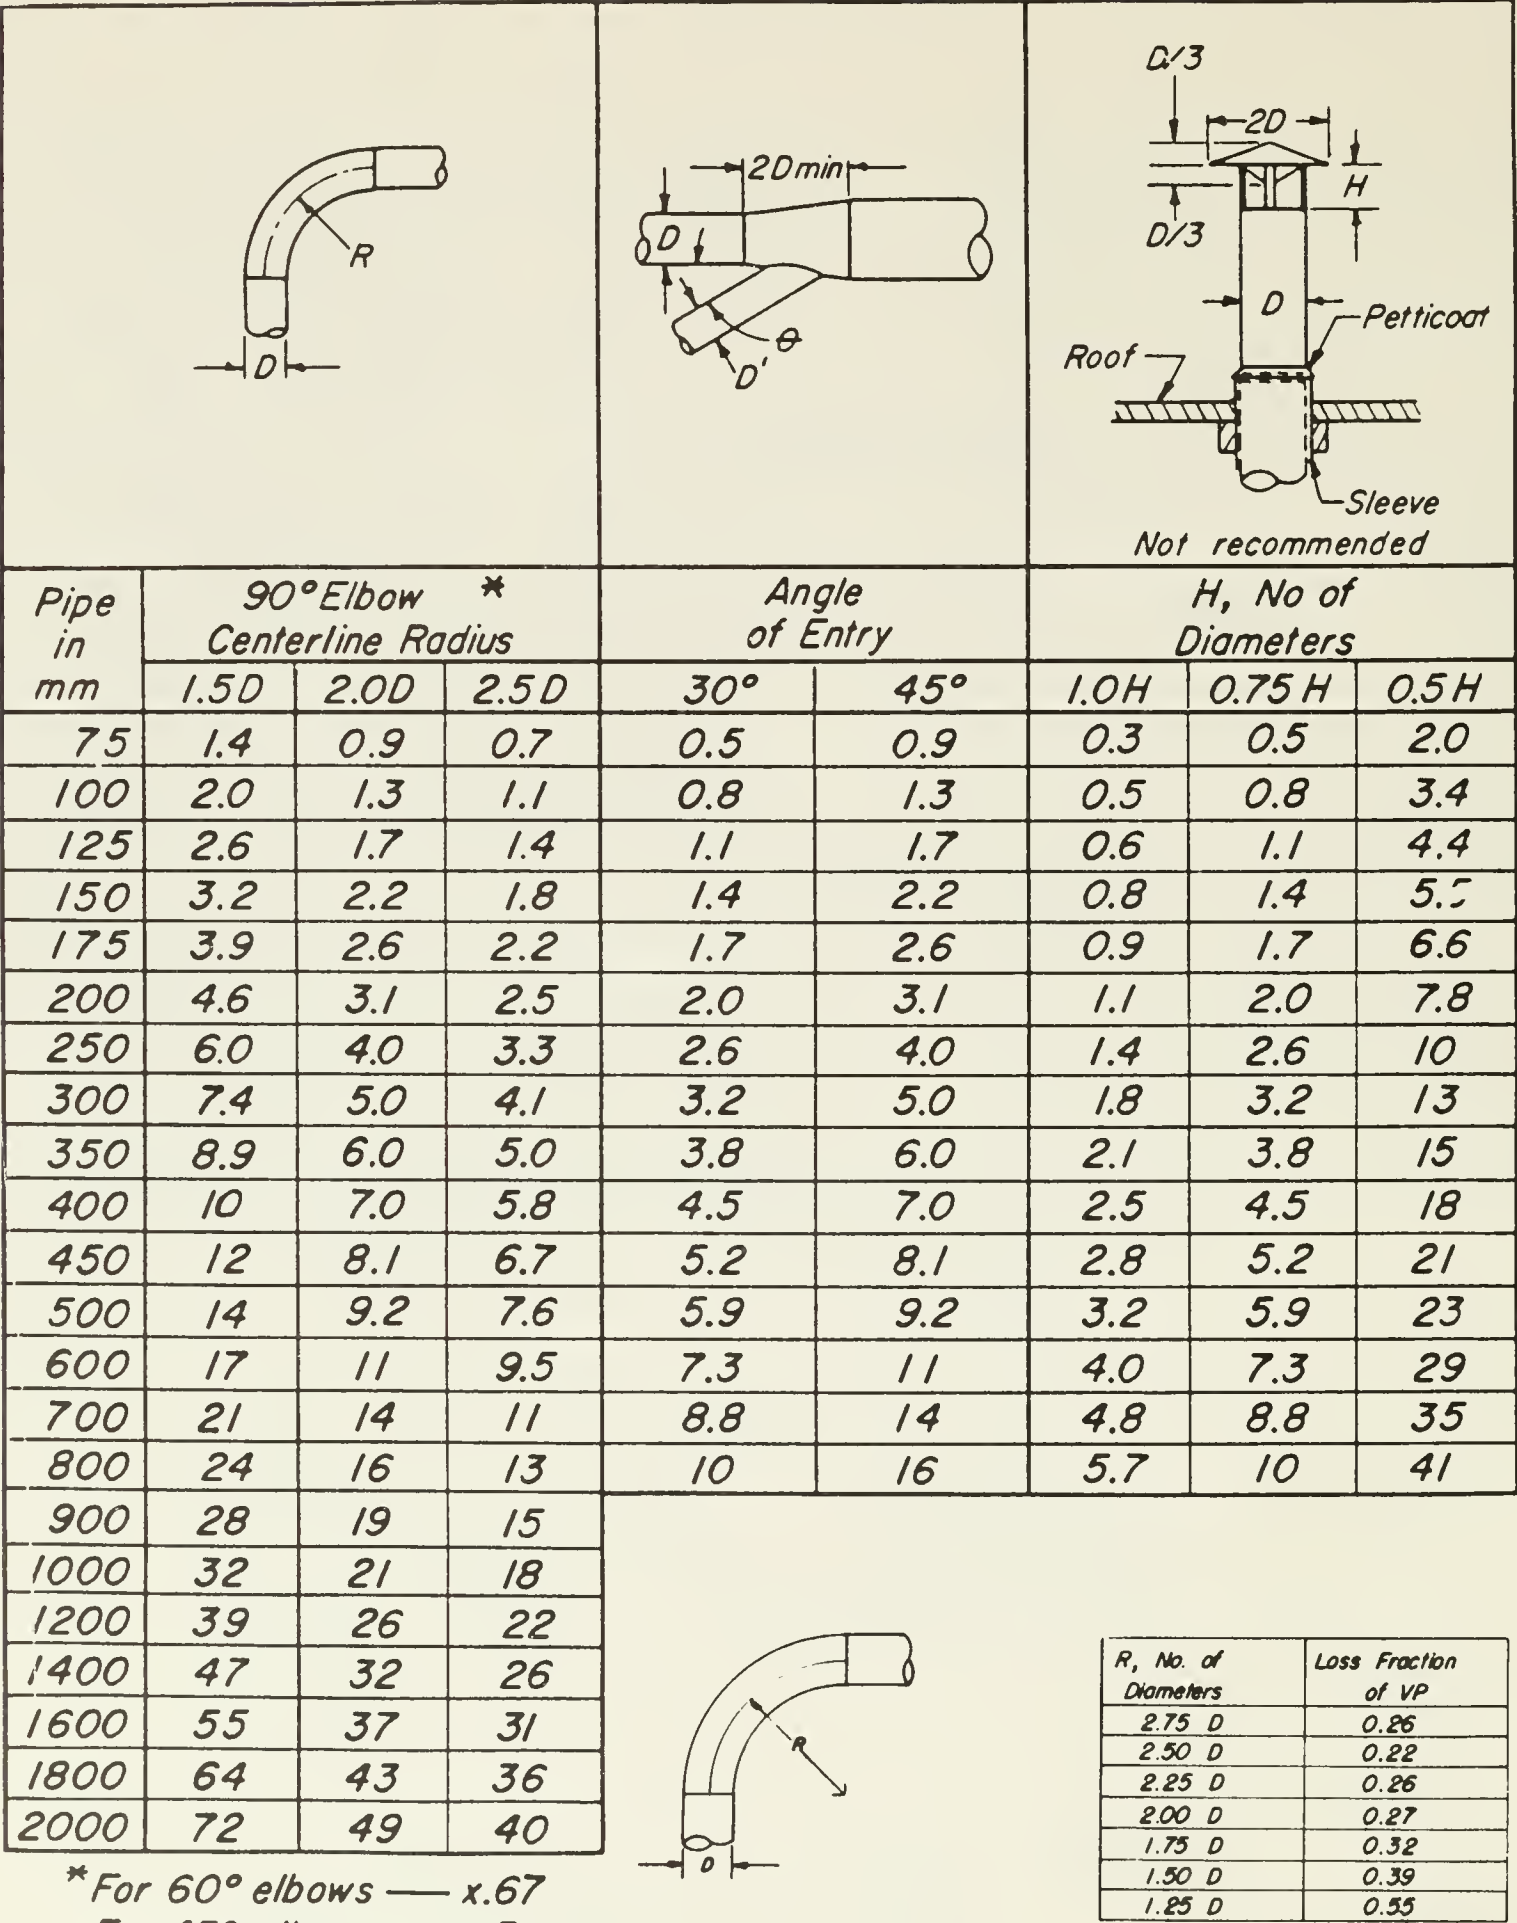 R
D
2D min
D
θ
D'
D/3
2D
H
D/3
D
Petticoat
Roof
Sleeve
Not recommended
Pipe in mm | 90° Elbow * Centerline Radius | Angle of Entry | H, No of Diameters
1.5D 2.0D 2.5D 30° 45° 1.0H 0.75H 0.5H
75 1.4 0.9 0.7 0.5 0.9 0.3 0.5 2.0
100 2.0 1.3 1.1 0.8 1.3 0.5 0.8 3.4
125 2.6 1.7 1.4 1.1 1.7 0.6 1.1 4.4
150 3.2 2.2 1.8 1.4 2.2 0.8 1.4
175 3.9 2.6 2.2 1.7 2.6 0.9 1.7 6.6
200 4.6 3.1 2.5 2.0 3.1 1.1 2.0 7.8
250 6.0 4.0 3.3 2.6 4.0 1.4 2.6 10
300 7.4 5.0 4.1 3.2 5.0 1.8 3.2 13
350 8.9 6.0 5.0 3.8 6.0 2.1 3.8 15
400 10 7.0 5.8 4.5 7.0 2.5 4.5 18
450 12 8.1 6.7 5.2 8.1 2.8 5.2 21
500 14 9.2 7.6 5.9 9.2 3.2 5.9 23
600 17 11 9.5 7.3 11 4.0 7.3 29
700 21 14 11 8.8 14 4.8 8.8 35
800 24 16 13 10 16 5.7 10 41
900 28 19 15
1000 32 21 18
1200 39 26 22
1400 47 32 26
1600 55 37 31
1800 64 43 36
2000 72 49 40
*For 60° elbows — x.67
R
D
R, No. of Diameters | Loss Fraction of VP
2.75 D 0.26
2.50 D 0.22
2.25 D 0.26
2.00 D 0.27
1.75 D 0.32
1.50 D 0.39
1.25 D 0.55